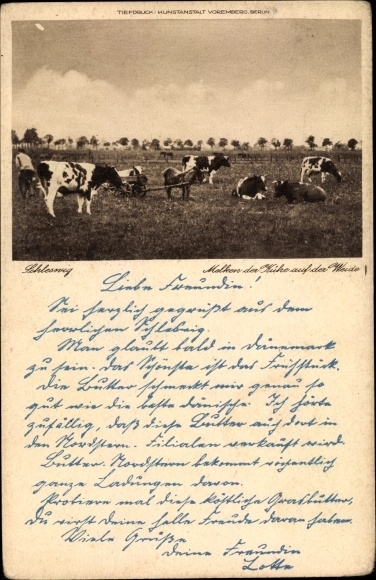 TIEFDRUCK: KUNSTANSTALT VOREMBERG, BERLIN
Schleswig
Melken der Kühe auf der Weide
Liebe Freundin!
Sei herzlich gegrüßt aus dem
herrlichen Schleswig.
Man glaubt bald in Dänemark
zu sein. Das Schönste ist das Frühstück.
Die Butter schmeckt mir genau so
gut wie die beste dänische. Ich hörte
zufällig, daß diese Butter auch dort in
den Nordstern-Filialen verkauft wird.
Butter-Nordstern bekommt wöchentlich
ganze Ladungen davon.
Probiere mal diese köstliche Grasbutter,
Du wirst Deine helle Freude daran haben.
Viele Grüße
Deine Freundin
Lotte